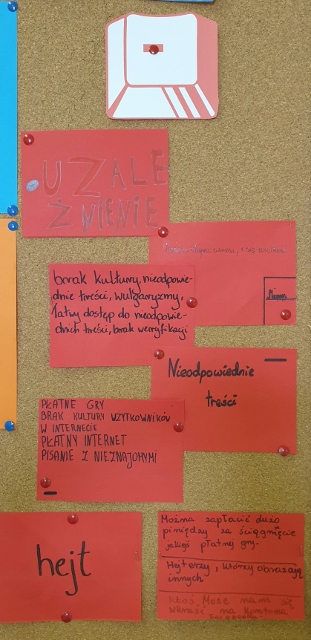 UZALE
ŻNIENIE
borak kultury, nieodpowie-
dnie treści, wulgaryzmy,
łatwy dostęp do nieodpowie-
dnich treści, brak weryfikacji
Nieodpowiednie
treści
PŁATNE GRY
BRAK KULTURY UŻYTKOWNIKÓW
W INTERNECIE
PŁATNY INTERNET
PISANIE Z NIEZNAJOMYMI
hejt
Można zapłacić dużo
pieniędzy za ściągnięcie
jakiejś płatnej gry.
Hejterzy, którzy obrażają
innych
ktoś Może nama się